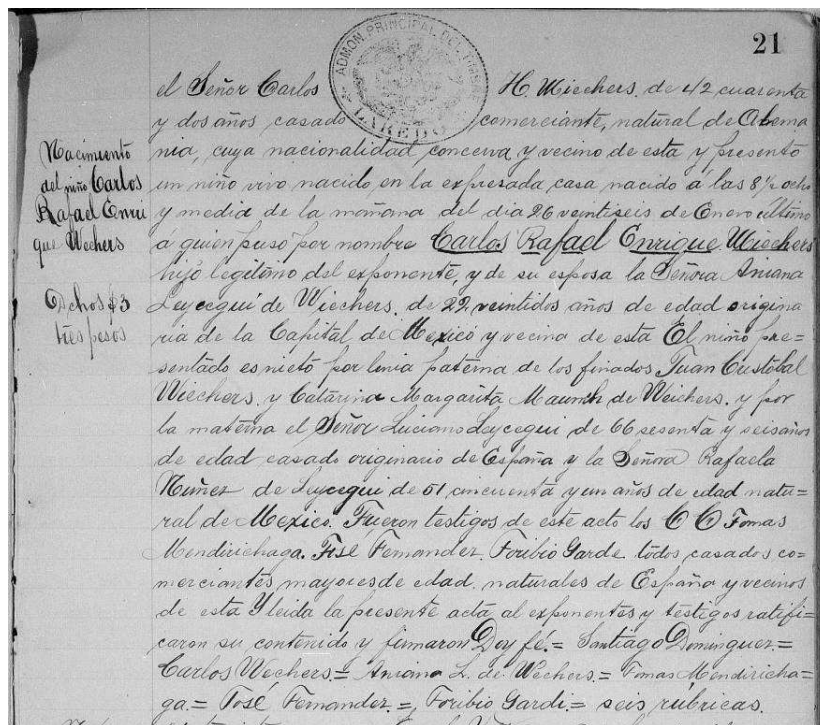 21
ADMON PRINCIPAL DEL TIMBRE
LAREDO
el Señor Carlos H. Wiechers, de 42 cuarenta
y dos años casado comerciante, natural de Alema
nia, cuya nacionalidad concerva, y vecino de esta y presentó
un niño vivo nacido en la expresada casa nacido á las 8½ ocho
y media de la mañana del dia 26 veintiseis de Enero último
á quien puso por nombre Carlos Rafael Enrique Wiechers
hijo legitimo del exponente, y de su esposa la Señora Aniana
Leycegui de Wiechers, de 22, veintidos años de edad origina
ria de la Capital de Mexico y vecina de esta El niño pre=
sentado es nieto por linia paterna de los finados Juan Cristobal
Wiechers, y Catarina Margarita Maunch de Weichers, y por
la materna el Señor Luciano Leycegui de 66 sesenta y seis años
de edad casado originario de España y la Señora Rafaela
Nuñez de Leycegui de 51, cincuenta y un años de edad natu=
ral de Mexico. Fueron testigos de este acto los C C Tomas
Mendirichaga. José Fernandez. Toribio Garde todos casados co=
merciantes mayores de edad, naturales de España y vecinos
de esta Y leida la presente acta al exponentes y testigos ratifi=
caron su contenido y firmaron Doy fé.= Santiago Dominguez.=
Carlos Wechers.= Aniana L. de Wechers.= Tomas Mendiricha=
ga.= José Fernandez.=, Toribio Gardi.= seis rúbricas.
Nacimiento
del niño Carlos
Rafael Enri
que Wechers
Dchos $3
tres pesos